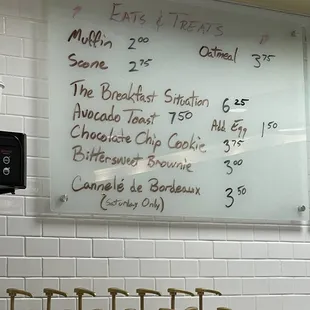 EATS & TREATS
Muffin 2.00
Oatmeal 3.75
Scone 2.75
The Breakfast Situation 6.25
Avocado Toast 7.50 Add Egg 1.50
Chocolate Chip Cookie 3.75
Bittersweet Brownie 3.00
Cannelé de Bordeaux 3.50
(Saturday Only)